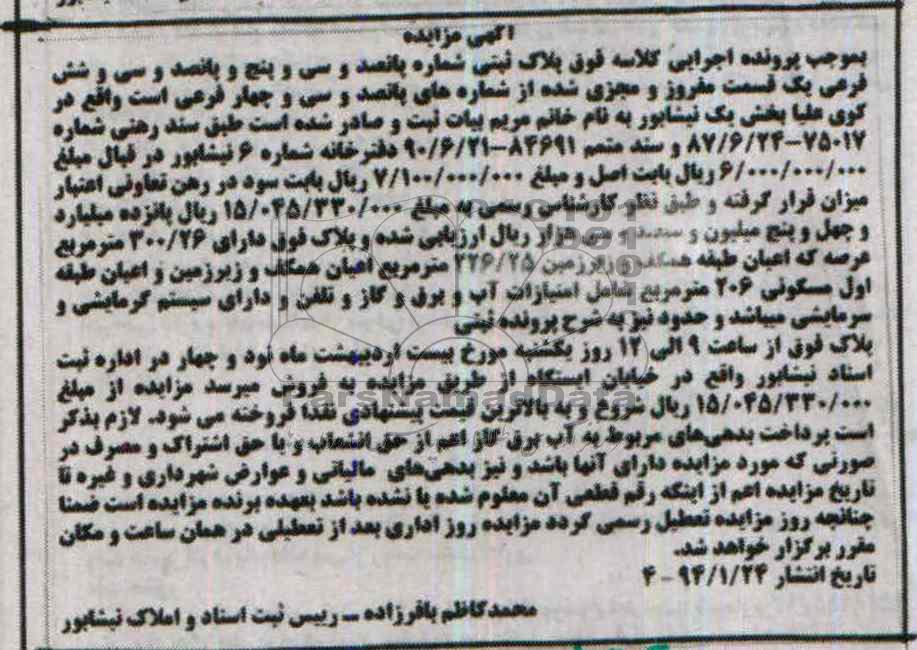 آگهی مزایده
بموجب پرونده اجرایی کلاسه فوق پلاک ثبتی شماره پانصد و سی و پنج و پانصد و سی و شش
فرعی یک قسمت مفروز و مجزی شده از شماره های پانصد و سی و چهار فرعی است واقع در
کوی علیا بخش یک نیشابور به نام خانم مریم بیات ثبت و صادر شده است طبق سند رهنی شماره
۷۵۰۱۷-۸۷/۶/۲۴ و سند متمم ۸۴۶۹۱-۹۰/۶/۲۱ دفترخانه شماره ۶ نیشابور در قبال مبلغ
۶/۰۰۰/۰۰۰/۰۰۰ ریال بابت اصل و مبلغ ۷/۱۰۰/۰۰۰/۰۰۰ ریال بابت سود در رهن تعاونی اعتبار
میزان قرار گرفته و طبق نظر کارشناس رسمی به مبلغ ۱۵/۰۴۵/۳۳۰/۰۰۰ ریال پانزده میلیارد
و چهل و پنج میلیون و سیصد و سی هزار ریال ارزیابی شده و پلاک فوق دارای ۳۰۰/۲۶ مترمربع
عرصه که اعیان طبقه همکف و زیرزمین ۲۲۶/۲۵ مترمربع اعیان همکف و زیرزمین و اعیان طبقه
اول مسکونی ۲۰۶ مترمربع شامل امتیازات آب و برق و گاز و تلفن و دارای سیستم گرمایشی و
سرمایشی میباشد و حدود نیز به شرح پرونده ثبتی
پلاک فوق از ساعت ۹ الی ۱۲ روز یکشنبه مورخ بیست اردیبهشت ماه نود و چهار در اداره ثبت
اسناد نیشابور واقع در خیابان ایستگاه از طریق مزایده به فروش میرسد مزایده از مبلغ
۱۵/۰۴۵/۳۳۰/۰۰۰ ریال شروع و به بالاترین قیمت پیشنهادی نقدا فروخته می شود. لازم بذکر
است پرداخت بدهی‌های مربوط به آب برق گاز اعم از حق انشعاب و یا حق اشتراک و مصرف در
صورتی که مورد مزایده دارای آنها باشد و نیز بدهی‌های مالیاتی و عوارض شهرداری و غیره تا
تاریخ مزایده اعم از اینکه رقم قطعی آن معلوم شده یا نشده باشد بعهده برنده مزایده است ضمنا
چنانچه روز مزایده تعطیل رسمی گردد مزایده روز اداری بعد از تعطیلی در همان ساعت و مکان
مقرر برگزار خواهد شد.
تاریخ انتشار ۹۴/۱/۲۴ - ۴
محمدکاظم باقرزاده ــ رییس ثبت اسناد و املاک نیشابور
ParsNamadData